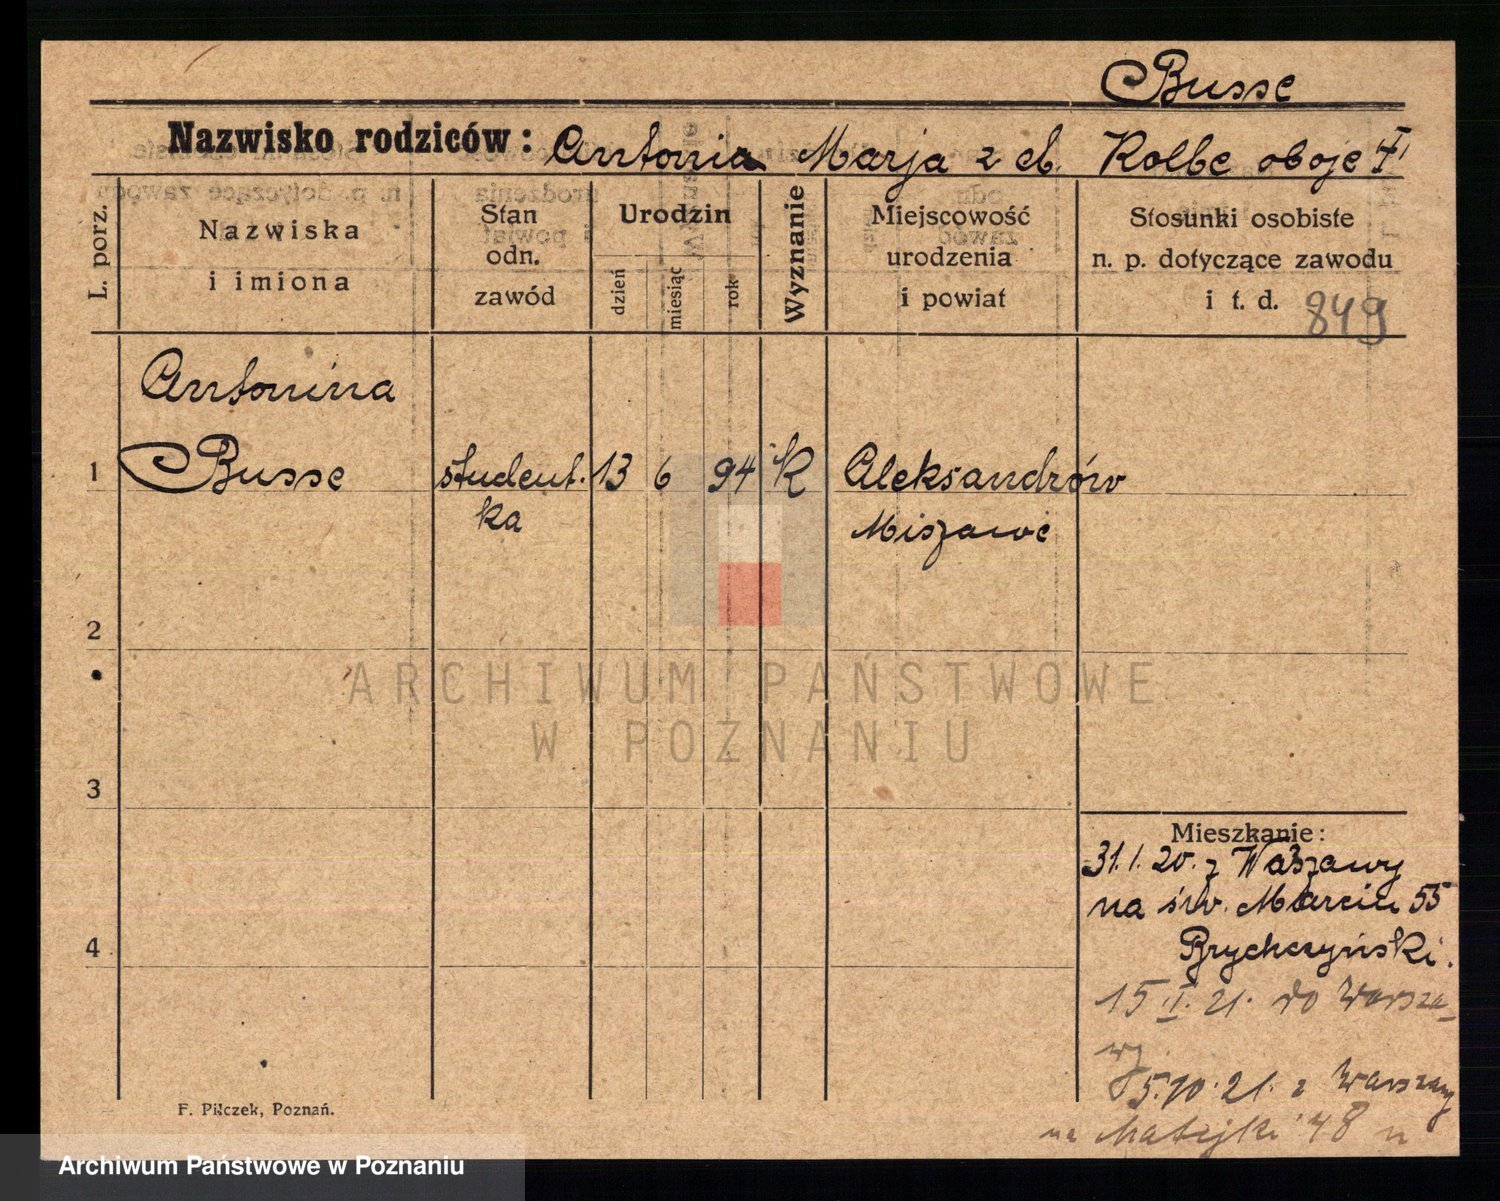 Busse
Nazwisko rodziców: Antonia Marja z d. Kolbe oboje †
L. porz.
Nazwiska
i imiona
Stan
odn.
zawód
Urodzin
dzień
miesiąc
rok
Wyznanie
Miejscowość
urodzenia
i powiat
Stosunki osobiste
n. p. dotyczące zawodu
i t. d. 849
Antonina
1 Busse student- 13 6 94 k Aleksandrów
ka
2
ARCHIWUM PAŃSTWOWE
W POZNANIU
3
Mieszkanie:
31.1.20. z Waszawy
na św. Marcin 55
4 Brychczyński.
15.I.21. do Warsza-
wy
5.10.21. z Warszawy
na Matejki 48
F. Pilczek, Poznań.
Archiwum Państwowe w Poznaniu